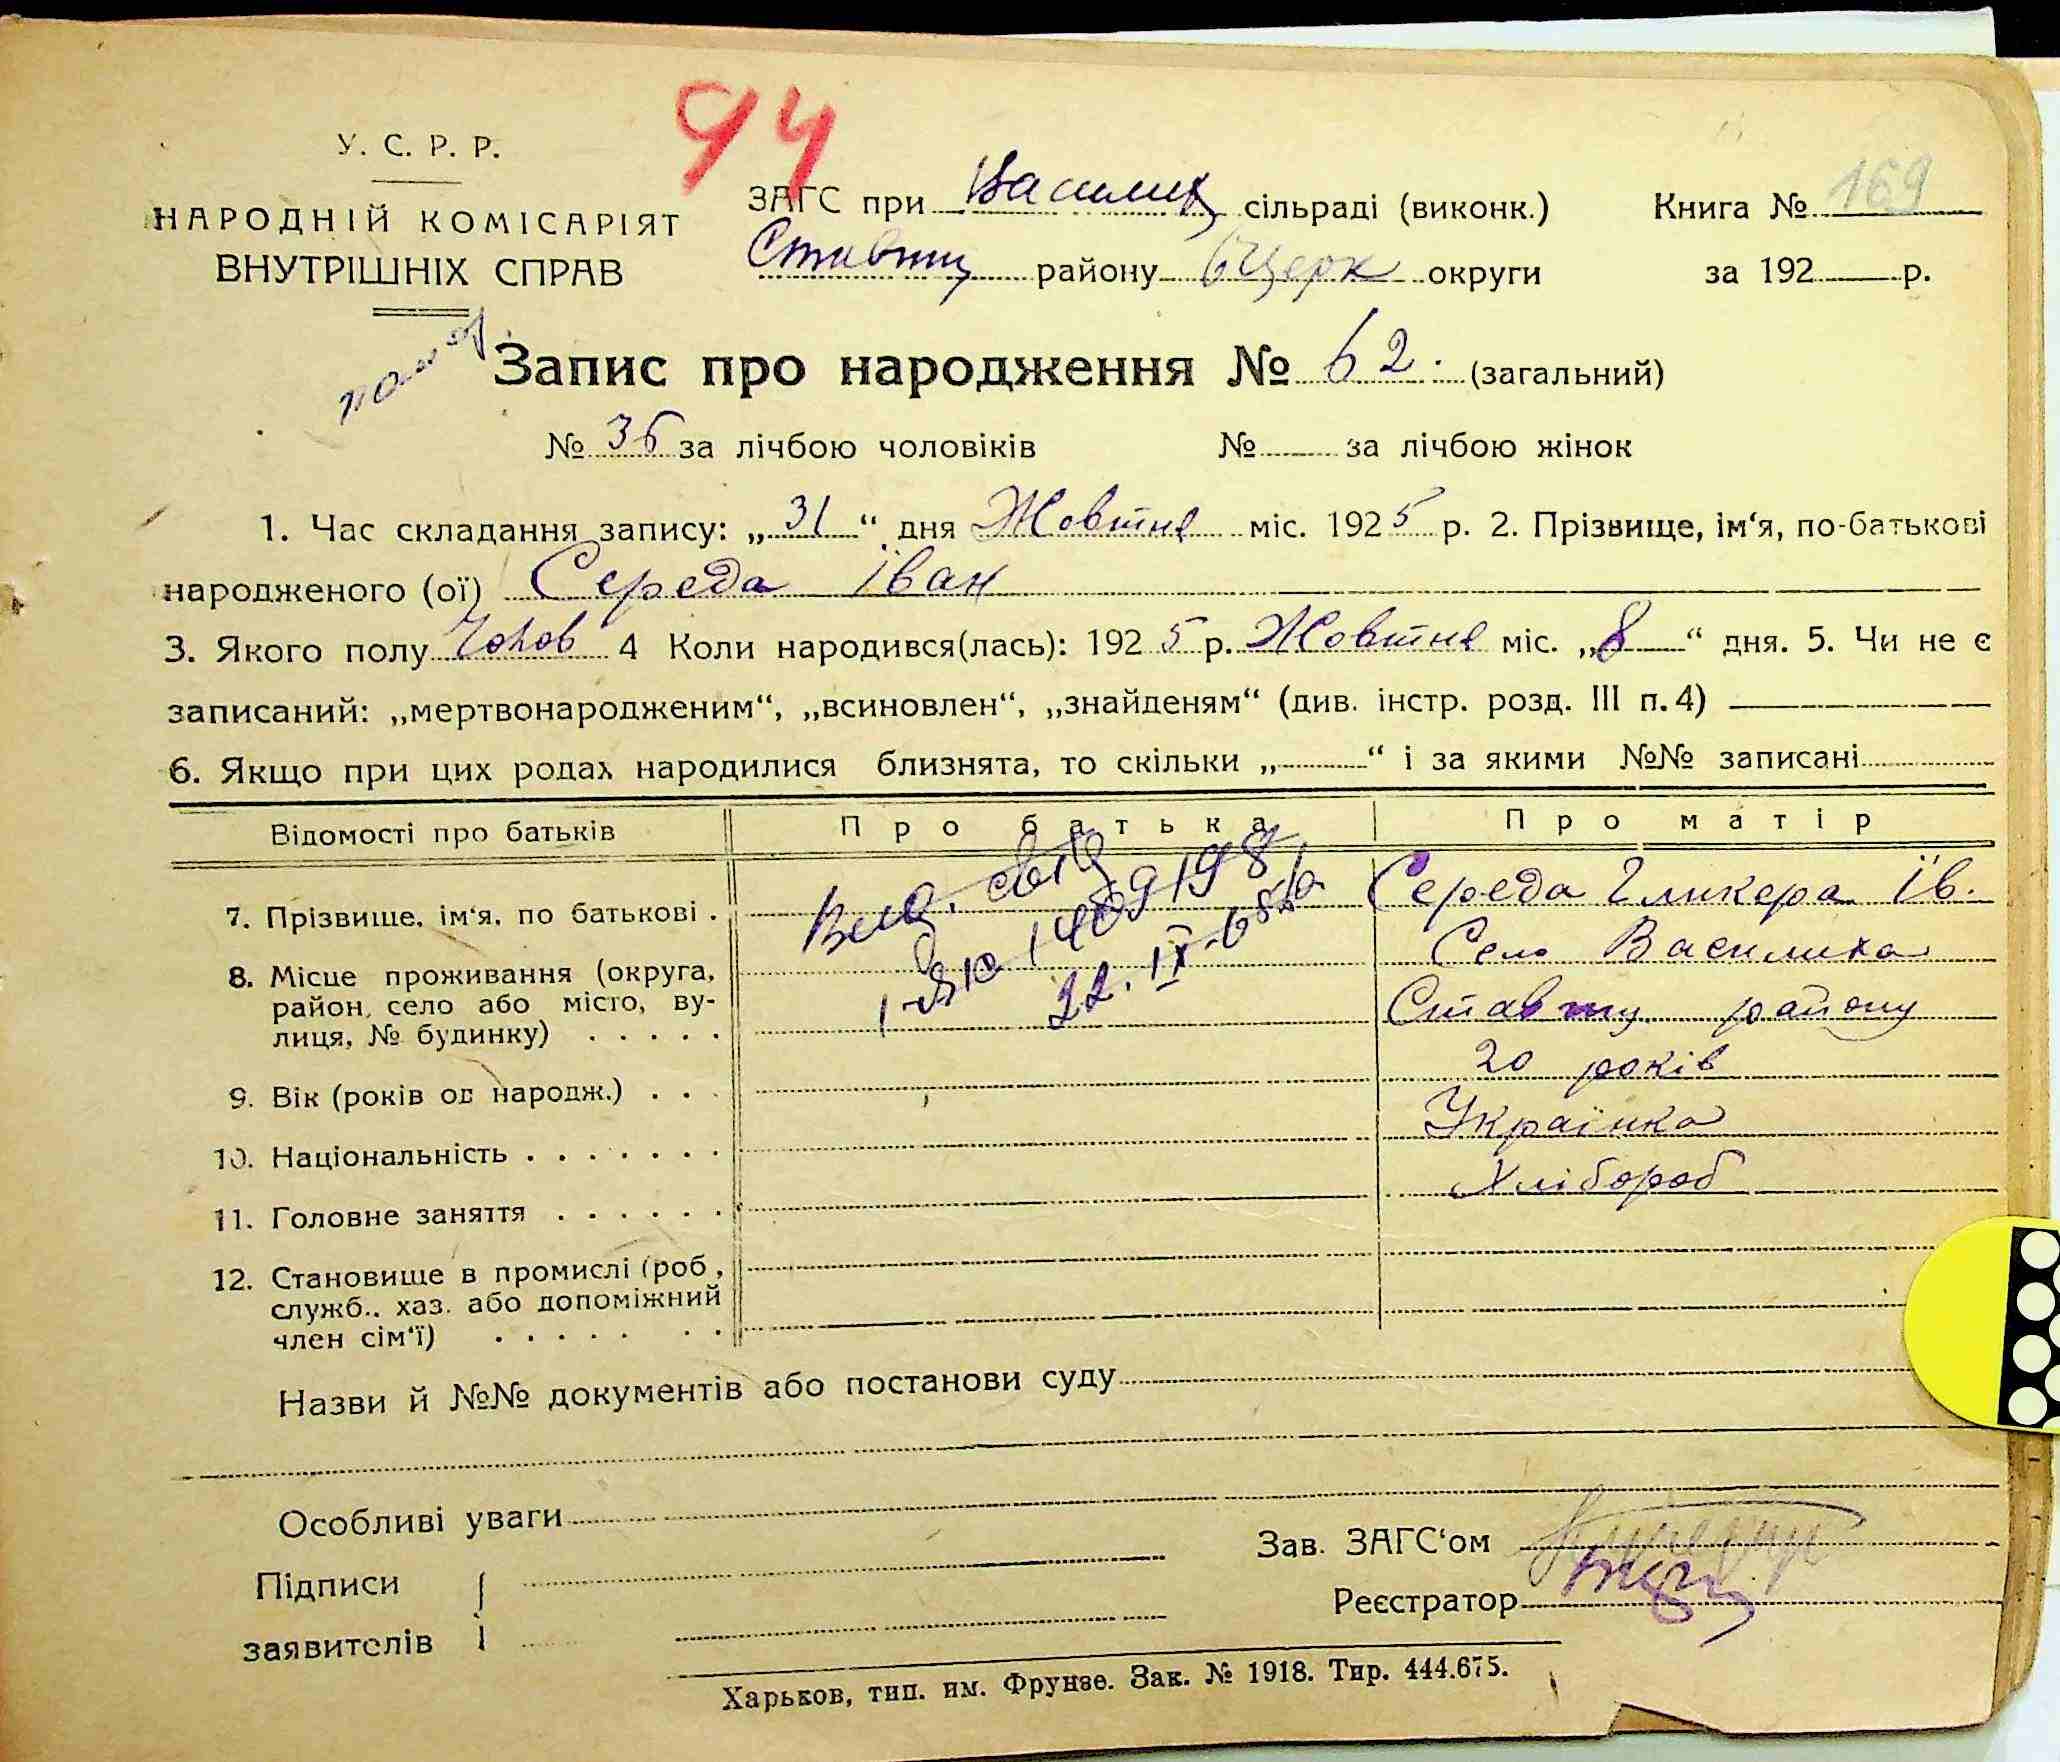 94
У. С. Р. Р.
НАРОДНІЙ КОМІСАРІЯТ
ВНУТРІШНІХ СПРАВ
ЗАГС при Василих сільраді (виконк.)
Ставищ району БЦерк округи
Книга № 169
за 192 р.
Запис про народження № 62. (загальний)
№ 36 за лічбою чоловіків № за лічбою жінок
1. Час складання запису: „31“ дня Жовтня міс. 1925 р. 2. Прізвище, ім‘я, по-батькові
народженого (ої) Середа Іван
3. Якого полу Чолов 4 Коли народився(лась): 1925 р. Жовтня міс. „8“ дня. 5. Чи не є
записаний: „мертвонародженим“, „всиновлен“, „знайденям“ (див. інстр. розд. III п. 4)
6. Якщо при цих родах народилися близнята, то скільки „ “ і за якими №№ записані
Відомості про батьків Про батька Про матір
7. Прізвище, ім‘я, по батькові . Середа Гликера Ів.
8. Місце проживання (округа, Село Василиха
район, село або місто, ву- Ставищ району
лиця, № будинку) . . . . .
Вид. свід
22. IX
9. Вік (років од народж.) . . . 20 років
10. Національність . . . . . . . Українка
11. Головне заняття . . . . . . Хлібороб
12. Становище в промислі (роб.,
служб., хаз. або допоміжний
член сім‘ї) . . . . . . .
Назви й №№ документів або постанови суду
Особливі уваги
Зав. ЗАГС‘ом
Підписи
Реєстратор
заявителів
Харьков, тип. им. Фрунзе. Зак. № 1918. Тир. 444.675.